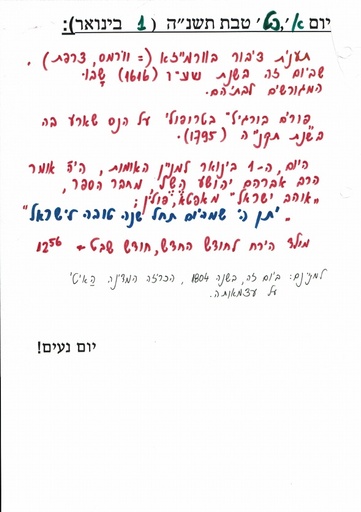 יום א/', כט' טבת תשנ"ה ( 1 בינואר):
תענית ציבור בוורמיזא (= וורמס, צרפת).
שביום זה בשנת שע"ו (1616) שבו
המגורשים לבתיהם.
פורים בורגיל בטריפולי על הנס שארע בה
בשנת תקנ"ה (1795).
היום, ה-1 בינואר למנין האומות, היה אומר
הרב אברהם יהושע השל, מחבר הספר,
"אוהב ישראל" מאפטא, פולין:
"יתן ה' שמהיום תחל שנה טובה לישראל"
מולד הירח לחודש החדש, חודש שבט - 12⁵⁶
ביום זה, בשנה 1804, הכריזה המדינה האיטי
על עצמאותה.
יום נעים!